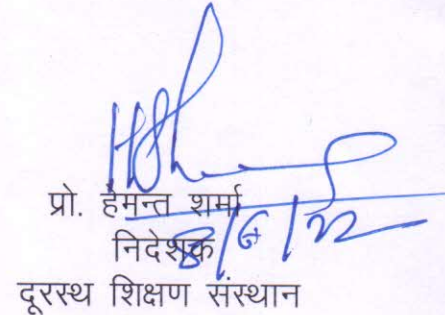 प्रो. हेमन्त शर्मा
निदेशक
8/6/22
दूरस्थ शिक्षण संस्थान